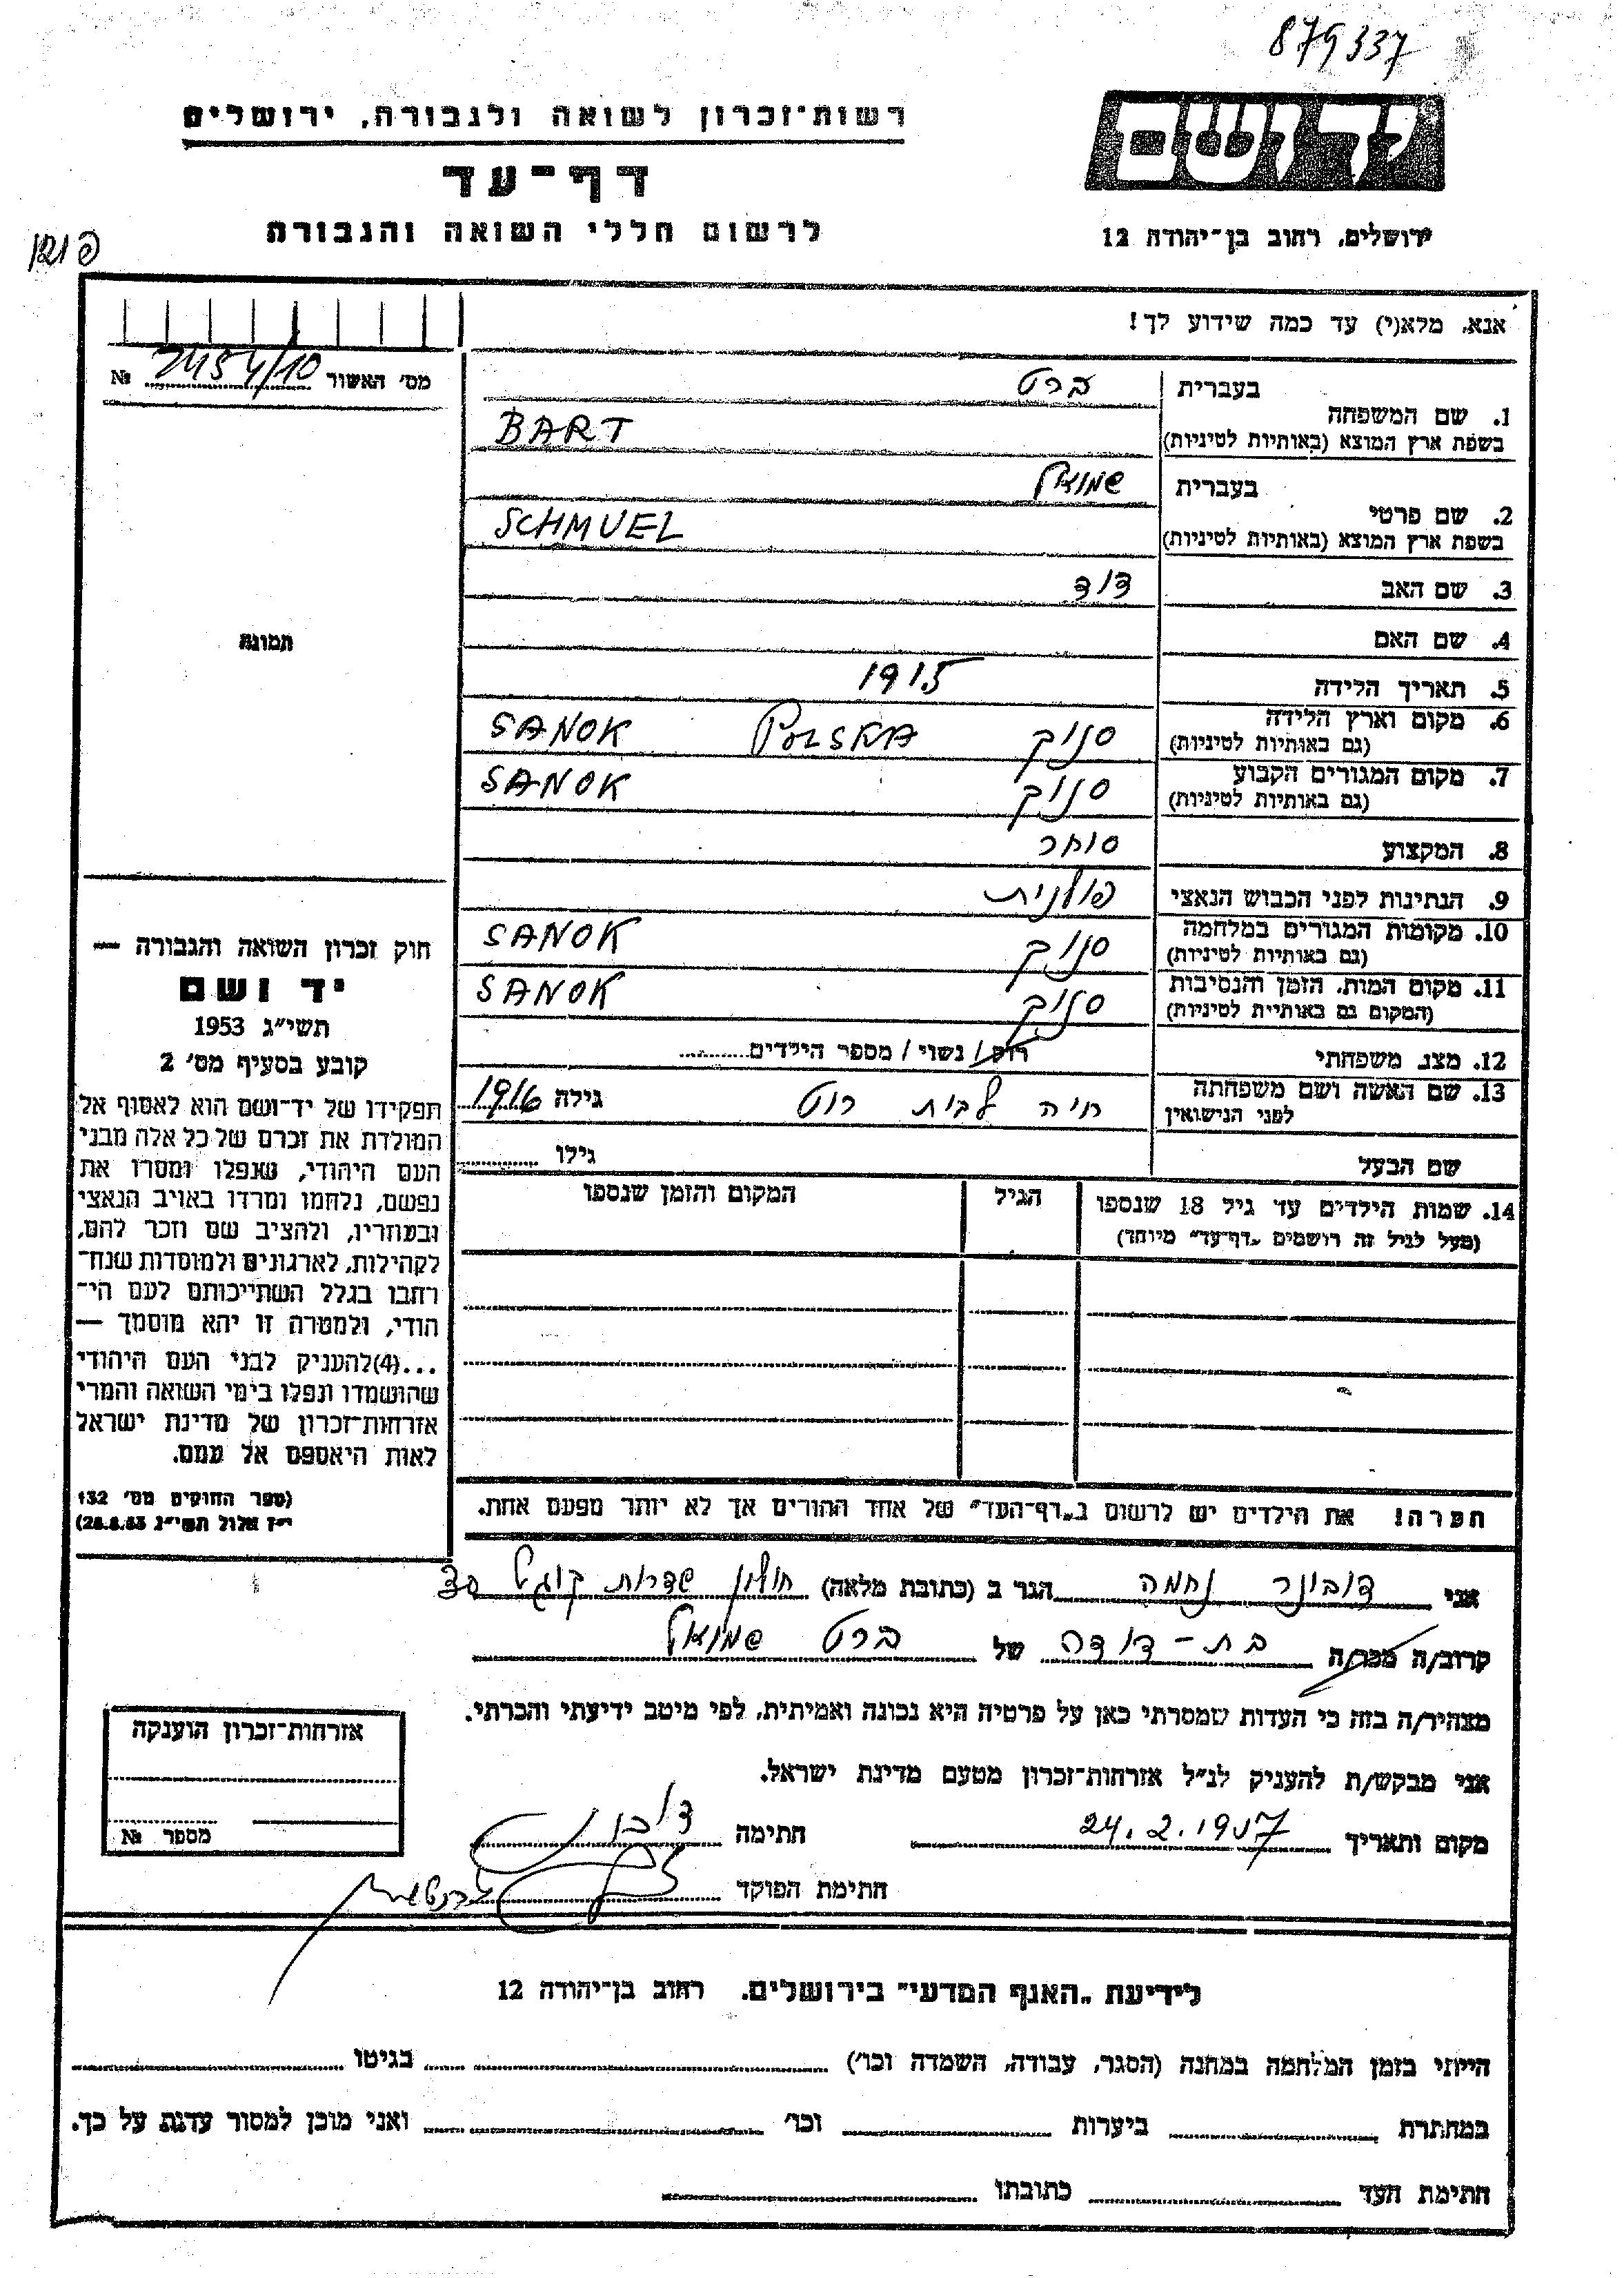 879337
רשות-זכרון לשואה ולגבורה, ירושלים
ידושם
דף-עד
לרשום חללי השואה והגבורה
ירושלים, רחוב בן-יהודה 12
אנא, מלא(י) עד כמה שידוע לך!
מס' האשור № 7154/10
בעברית ברט
1. שם המשפחה
בשפת ארץ המוצא (באותיות לטיניות) BART
בעברית שמואל
2. שם פרטי
בשפת ארץ המוצא (באותיות לטיניות) SCHMUEL
3. שם האב דוד
4. שם האם
תמונה
5. תאריך הלידה 1915
6. מקום וארץ הלידה סנוק POLSKA SANOK
(גם באותיות לטיניות)
7. מקום המגורים הקבוע סנוק SANOK
(גם באותיות לטיניות)
8. המקצוע סוחר
9. הנתינות לפני הכבוש הנאצי פולנית
10. מקומות המגורים במלחמה סנוק SANOK
(גם באותיות לטיניות)
11. מקום המות, הזמן והנסיבות סנוק SANOK
(המקום גם באותיות לטיניות)
12. מצב משפחתי רווק / נשוי / מספר הילדים
13. שם האשה ושם משפחתה חיה לבית רוט גילה 1916
לפני הנישואין
שם הבעל גילו
14. שמות הילדים עד גיל 18 שנספו הגיל המקום והזמן שנספו
(מעל לגיל זה רושמים „דף-עד" מיוחד)
חוק זכרון השואה והגבורה —
יד ושם
תשי"ג 1953
קובע בסעיף מס' 2
תפקידו של יד-ושם הוא לאסוף אל
המולדת את זכרם של כל אלה מבני
העם היהודי, שנפלו ומסרו את
נפשם, נלחמו ומרדו באויב הנאצי
ובעוזריו, ולהציב שם וזכר להם,
לקהילות, לארגונים ולמוסדות שנח-
רחבו בגלל השתייכותם לעם הי-
הודי, ולמטרה זו יהא מוסמך —
...(4)להעניק לבני העם היהודי
שהושמדו ונפלו בימי השואה והמרי
אזרחות-זכרון של מדינת ישראל
לאות היאספם אל עמם.
(ספר החוקים מס' 132
י"ז אלול תשי"ג 28.8.53)
הערה! את הילדים יש לרשום ב„דף-העד" של אחד ההורים אך לא יותר מפעם אחת.
אני דובינר נחמה הגר ב (כתובת מלאה) חולון שדרות קוגל
קרוב/ה מכר/ה בת-דודה של ברט שמואל
מצהיר/ה בזה כי העדות שמסרתי כאן על פרטיה היא נכונה ואמיתית, לפי מיטב ידיעתי והכרתי.
אני מבקש/ת להעניק לנ"ל אזרחות-זכרון מטעם מדינת ישראל.
מקום ותאריך 24.2.1957 חתימה
חתימת הפוקד
אזרחות-זכרון הוענקה
מספר №
לידיעת „האגף המדעי" בירושלים, רחוב בן-יהודה 12
הייתי בזמן המלחמה במחנה (הסגר, עבודה, השמדה וכו') בגיטו
במחתרת ביערות וכו' ואני מוכן למסור עדות על כך.
חתימת העד כתובתו